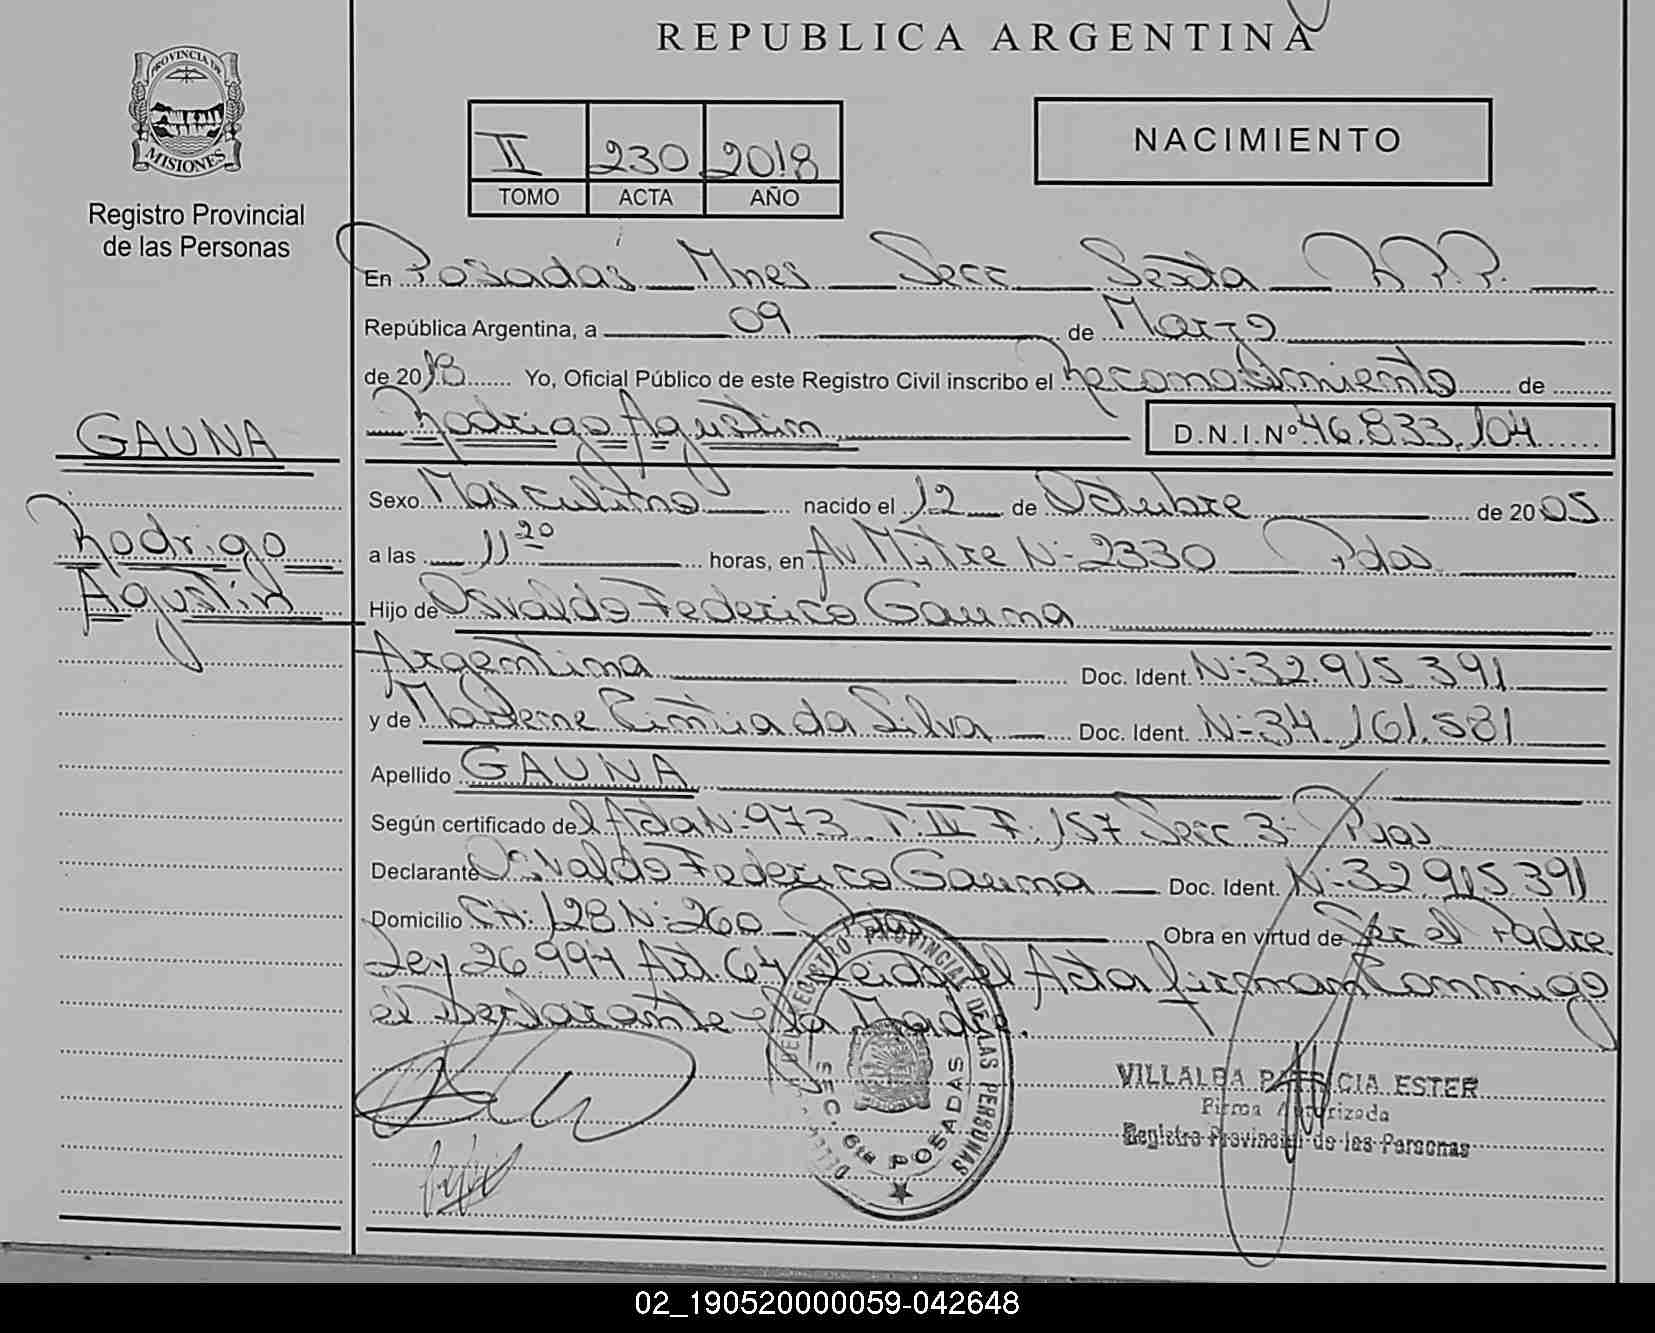 REPUBLICA ARGENTINA
PROVINCIA DE
MISIONES
Registro Provincial
de las Personas
II 230 2018
TOMO ACTA AÑO
NACIMIENTO
En Posadas Mnes Secc Sexta R.P.P.
República Argentina, a 09 de Marzo
de 2018 Yo, Oficial Público de este Registro Civil inscribo el Reconocimiento de
Rodrigo Agustin D.N.I.Nº 46.833.104
GAUNA
Rodrigo
Agustin
Sexo Masculino nacido el 12 de Octubre de 2005
a las 11 20 horas, en Av Mitre N- 2330 Pdas
Hijo de Osvaldo Federico Gauna
Argentina Doc. Ident. N-32.915.391
y de da Silva Doc. Ident. N-34.161.581
Apellido GAUNA
Según certificado del Acta N-973 T.III F.157 Secc 3- Pdas
Declarante Osvaldo Federico Gauna Doc. Ident. N-32.915.391
Domicilio CH-128 N-260 Pdas Obra en virtud de Ser el Padre
Ley 26.994 Art. 64 Leida el Acta firman Conmigo
el Declarante y la Madre.
REGISTRO PROVINCIAL DE LAS PERSONAS
SEC. 6ta POSADAS
VILLALBA PATRICIA ESTER
Firma Autorizada
Registro Provincial de las Personas
02_190520000059-042648